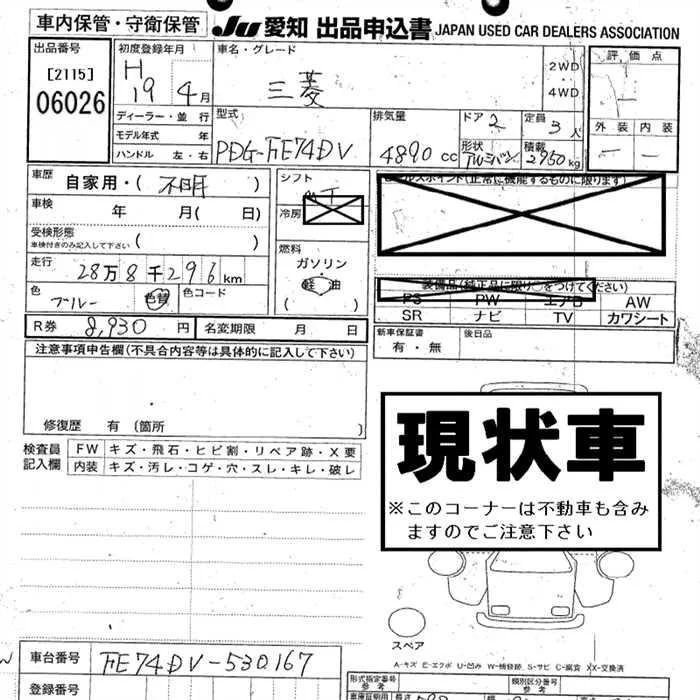 車内保管・守衛保管 JU 愛知 出品申込書 JAPAN USED CAR DEALERS ASSOCIATION
出品番号 初度登録年月 車名・グレード 評価点
[2115] H 2WD
06026 19 4月 三菱 4WD
ディーラー・並行 型式 排気量 ドア 2 定員 3人 外装 内装
モデル年式 年 形状 積載
ハンドル 左・右 PDG-FE74DV 4890cc アルミバン 2950kg
車歴 自家用・(不明) シフト MT
車検 年 月(日) 冷房
受検形態
車検付きのみ記入して下さい ( 燃料
走行 28万8千296km ガソリン
色 ブルー 色替 色コード 軽油
( )
セールスポイント(正常に機能するものに限ります)
装備品(純正品に限り○をつけてください)
PS PW エアB AW
SR ナビ TV カワシート
R券 8,930円 名変期限 月 日 新車保証書 後日品
有・無
注意事項申告欄(不具合内容等は具体的に記入して下さい)
修復歴 有 〔箇所
検査員 FW キズ・飛石・ヒビ割・リペア跡・X要
記入欄 内装 キズ・汚レ・コゲ・穴・スレ・キレ・破レ
現状車
※このコーナーは不動車も含み
ますのでご注意下さい
スペア
A-キズ E-エクボ U-凹み W-補修跡 S-サビ C-腐食 XX-交換済
車台番号 FE74DV-530167
登録番号
形式指定番号 参考 類別区分番号 参考